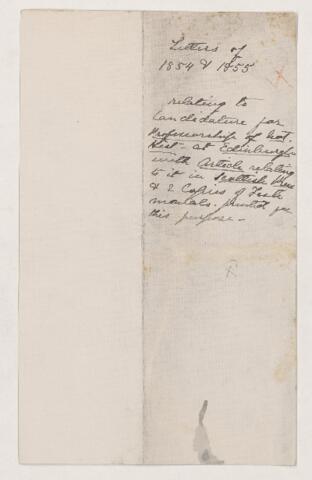 Letters of
1854 & 1855
relating to
Candidature for
Professorship of Nat.
Hist - at Edinburgh
with Article relating
to it in Scottish Press
& 2 Copies of Testi
monials. printed for
this purpose -